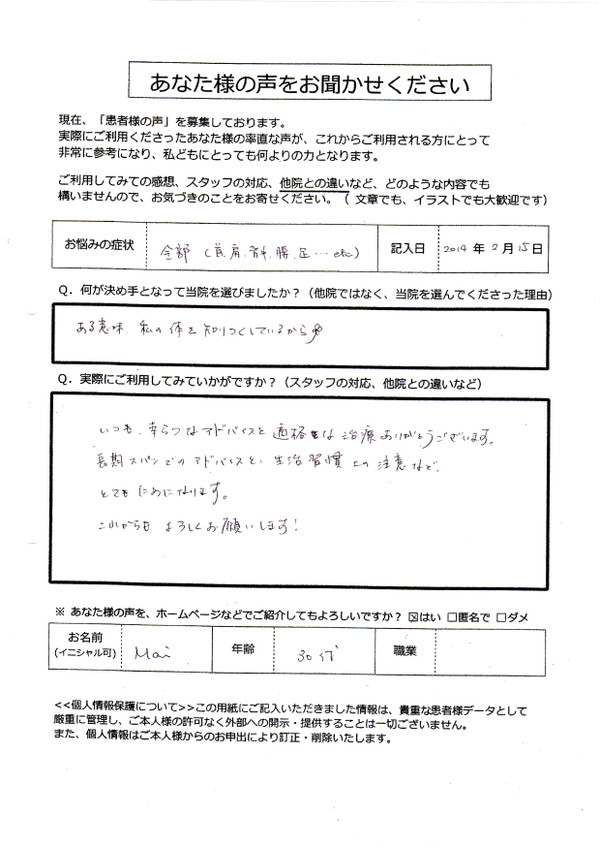 あなた様の声をお聞かせください
現在、「患者様の声」を募集しております。
実際にご利用くださったあなた様の率直な声が、これからご利用される方にとって
非常に参考になり、私どもにとっても何よりの力となります。
ご利用してみての感想、スタッフの対応、他院との違いなど、どのような内容でも
構いませんので、お気づきのことをお寄せください。（ 文章でも、イラストでも大歓迎です）
お悩みの症状 全部 (首、肩、背中、腰、足…etc) 記入日 2014 年 2 月 15 日
Q．何が決め手となって当院を選びましたか？（他院ではなく、当院を選んでくださった理由）
ある意味、私の体を知りつくしているから
Q．実際にご利用してみていかがですか？（スタッフの対応、他院との違いなど）
いつも、辛らつなアドバイスと 適格な治療ありがとうございます。
長期スパンでのアドバイスと、生活習慣上の注意など、
とてもためになります。
これからも よろしくお願いします！
※ あなた様の声を、ホームページなどでご紹介してもよろしいですか？ ☒はい □匿名で □ダメ
お名前 (イニシャル可) Mai 年齢 30代 職業
<<個人情報保護について>>この用紙にご記入いただきました情報は、貴重な患者様データとして
厳重に管理し、ご本人様の許可なく外部への開示・提供することは一切ございません。
また、個人情報はご本人様からのお申出により訂正・削除いたします。